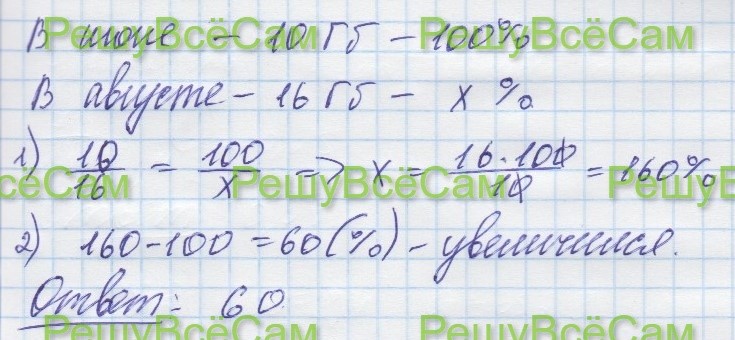 В июне – 10 Гб – 100%
В августе – 16 Гб – x %
1) 10/16 = 100/x => x = 16·100/10 = 160%
2) 160-100 = 60(%) – увеличился.
Ответ: 60.
РешуВсёСам РешуВсёСам
ёСам РешуВсёСам РешуВсё
РешуВсёСам РешуВсёСам